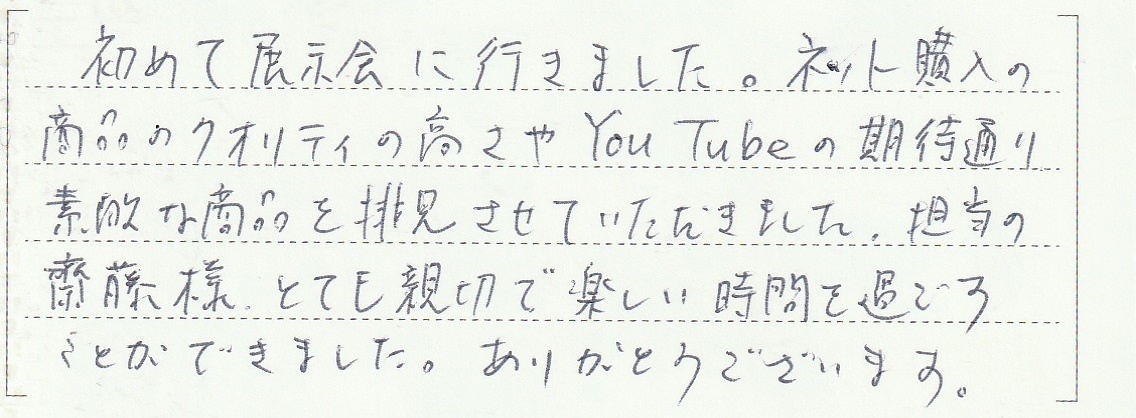 初めて展示会に行きました。ネット購入の
商品のクオリティの高さやYouTubeの期待通り
素敵な商品を拝見させていただきました。担当の
齋藤様、とても親切で楽しい時間を過ごす
ことができました。ありがとうございます。